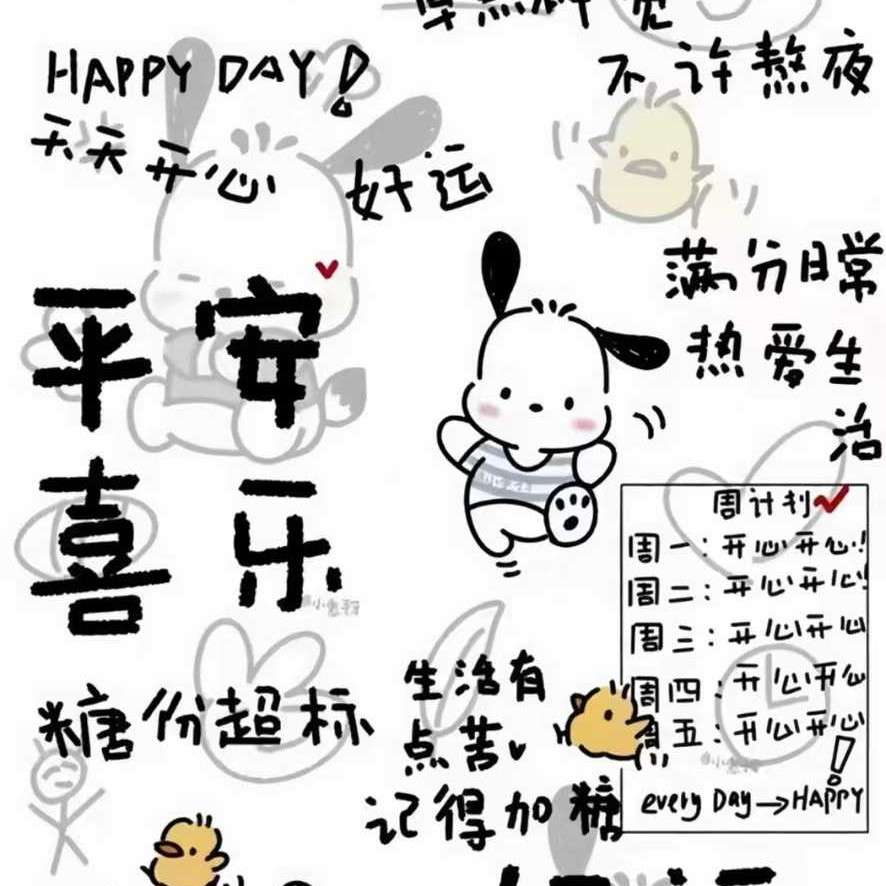 早点睡觉
不许熬夜
HAPPY DAY!
天天开心
好运
满分日常
热爱生
活
平安
喜乐
周计划
周一：开心开心！
周二：开心开心！
周三：开心开心
周四：开心开心
周五：开心开心！
every DAY→HAPPY
糖份超标
生活有
点苦
记得加糖